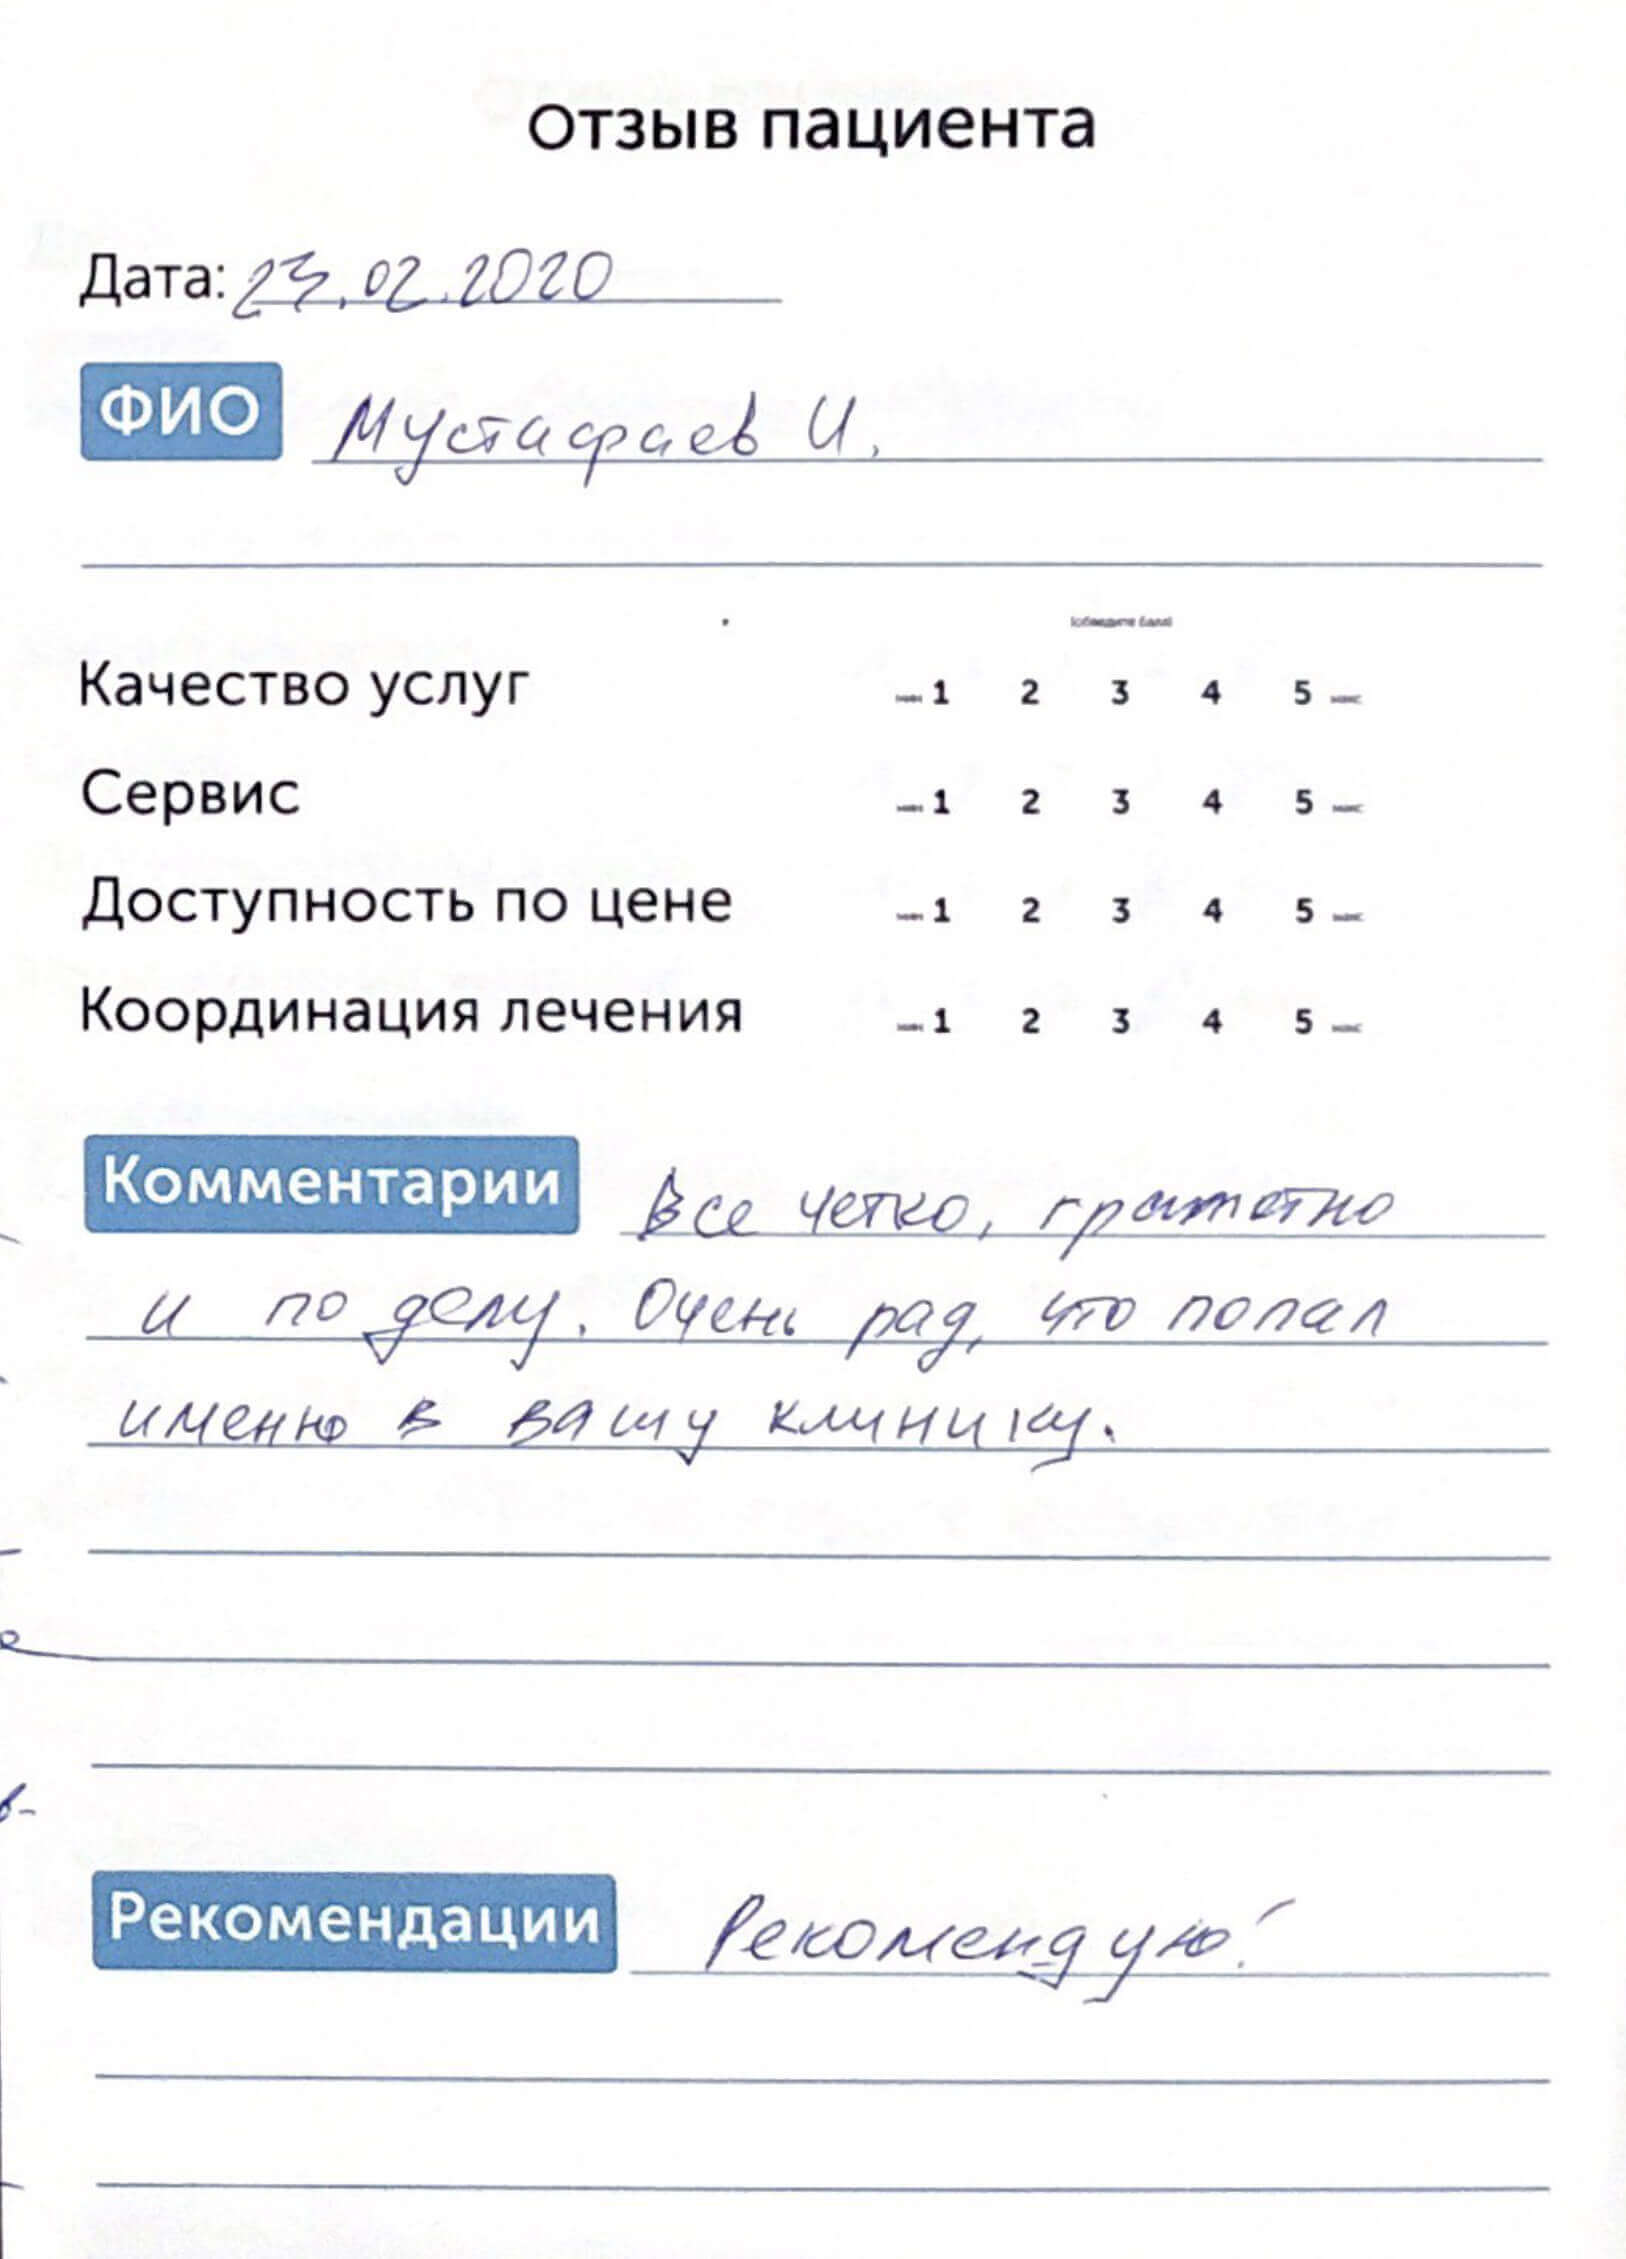 Отзыв пациента
Дата: 23.02.2020
ФИО Мустафаев И.
(обведите балл)
Качество услуг мин 1 2 3 4 5 макс
Сервис мин 1 2 3 4 5 макс
Доступность по цене мин 1 2 3 4 5 макс
Координация лечения мин 1 2 3 4 5 макс
Комментарии Все четко, грамотно
и по делу. Очень рад, что попал
именно в вашу клинику.
Рекомендации Рекомендую!